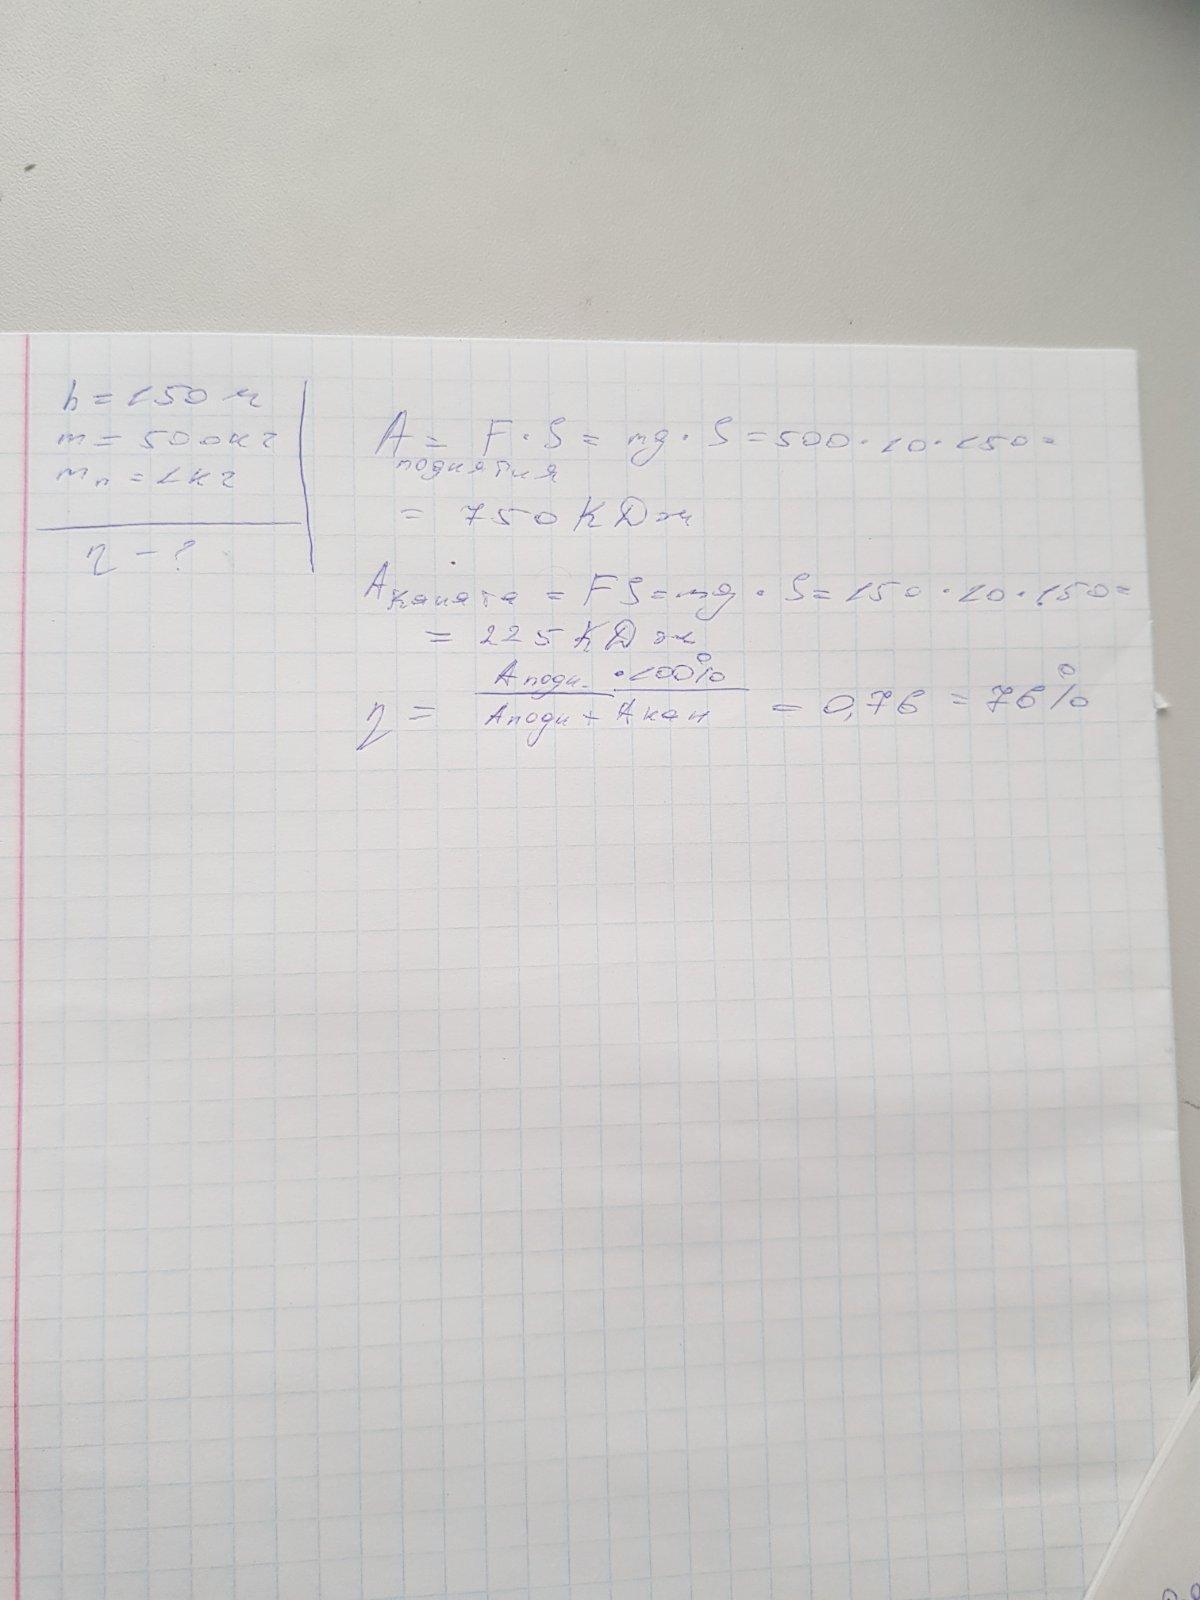 h = 150 м
m = 500 кг
mп = 1 кг
η - ?
A поднятия = F · S = mg · S = 500 · 10 · 150 =
= 750 КДж
A каната = FS = mg · S = 150 · 10 · 150 =
= 225 КДж
η = Aподн. · 100% / Aподн + Aкан = 0,76 = 76%